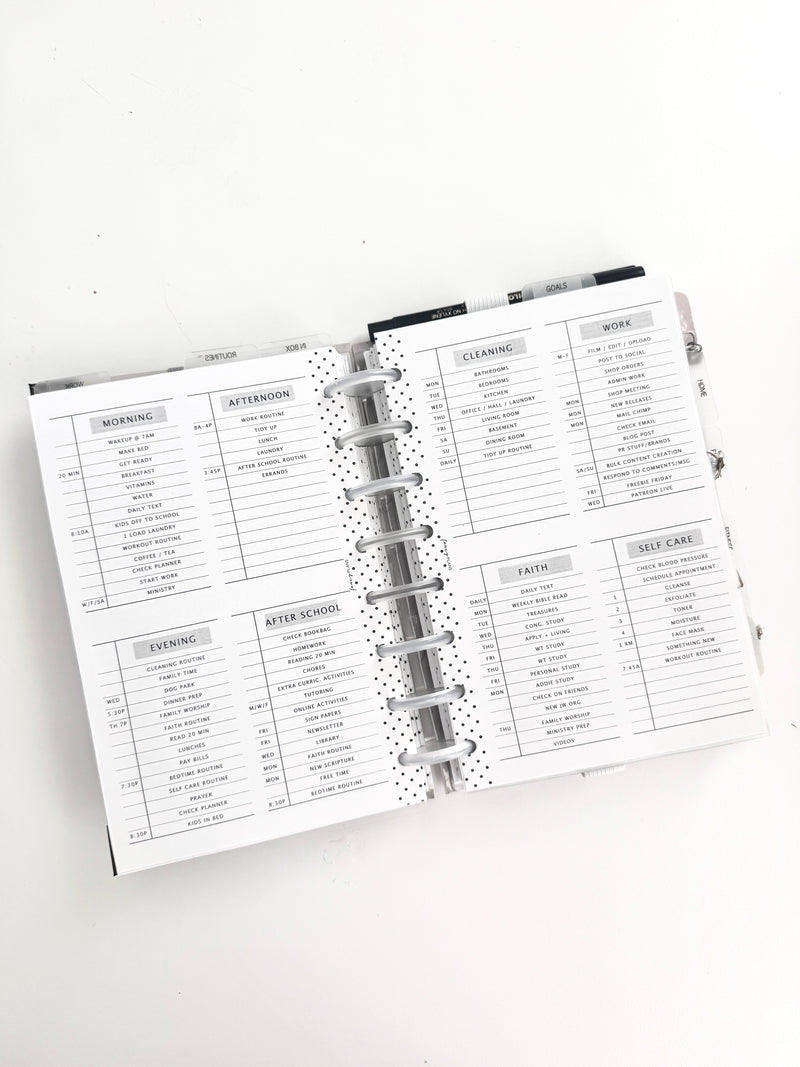 GOALS
IN BOX
ROUTINES
WORK
HOME
NO XYLENE
MORNING
WAKEUP @ 7AM
MAKE BED
GET READY
20 MIN BREAKFAST
VITAMINS
WATER
DAILY TEXT
KIDS OFF TO SCHOOL
8:10A 1 LOAD LAUNDRY
WORKOUT ROUTINE
COFFEE / TEA
CHECK PLANNER
START WORK
W/F/SA MINISTRY
AFTERNOON
8A-4P WORK ROUTINE
TIDY UP
LUNCH
LAUNDRY
3:45P AFTER SCHOOL ROUTINE
ERRANDS
EVENING
CLEANING ROUTINE
FAMILY TIME
DOG PARK
WED DINNER PREP
5:30P FAMILY WORSHIP
TH 7P FAITH ROUTINE
READ 20 MIN
LUNCHES
PAY BILLS
BEDTIME ROUTINE
7:30P SELF CARE ROUTINE
PRAYER
CHECK PLANNER
8:30P KIDS IN BED
AFTER SCHOOL
CHECK BOOKBAG
HOMEWORK
READING 20 MIN
CHORES
EXTRA CURRIC. ACTIVITIES
TUTORING
M/W/F ONLINE ACTIVITIES
SIGN PAPERS
FRI NEWSLETTER
FRI LIBRARY
WED FAITH ROUTINE
MON NEW SCRIPTURE
MON FREE TIME
8:30P BEDTIME ROUTINE
CLEANING
MON BATHROOMS
TUE BEDROOMS
WED KITCHEN
THU OFFICE / HALL / LAUNDRY
FRI LIVING ROOM
SA BASEMENT
SU DINING ROOM
DAILY TIDY UP ROUTINE
WORK
M-F FILM / EDIT / UPLOAD
POST TO SOCIAL
SHOP ORDERS
ADMIN WORK
SHOP MEETING
MON NEW RELEASES
MON MAIL CHIMP
MON CHECK EMAIL
BLOG POST
PR STUFF/BRANDS
SA/SU BULK CONTENT CREATION
RESPOND TO COMMENTS/MSG
FRI FREEBIE FRIDAY
WED PATREON LIVE
FAITH
DAILY DAILY TEXT
MON WEEKLY BIBLE READ
TUE TREASURES
WED CONG. STUDY
THU APPLY + LIVING
THU WT STUDY
FRI WT STUDY
FRI PERSONAL STUDY
MON ADDIE STUDY
CHECK ON FRIENDS
NEW JW.ORG
THU FAMILY WORSHIP
MINISTRY PREP
VIDEOS
SELF CARE
CHECK BLOOD PRESSURE
SCHEDULE APPOINTMENT
1 CLEANSE
2 EXFOLIATE
3 TONER
4 MOISTURE
1 XM FACE MASK
SOMETHING NEW
7:45A WORKOUT ROUTINE